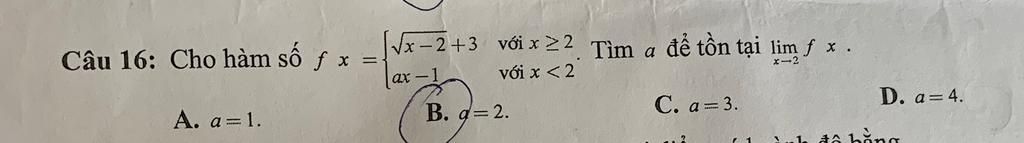 Câu 16: Cho hàm số f x = { √x−2 + 3 với x ≥ 2
ax − 1 với x < 2 . Tìm a để tồn tại lim x→2 f x .
A. a = 1. B. a = 2. C. a = 3. D. a = 4.